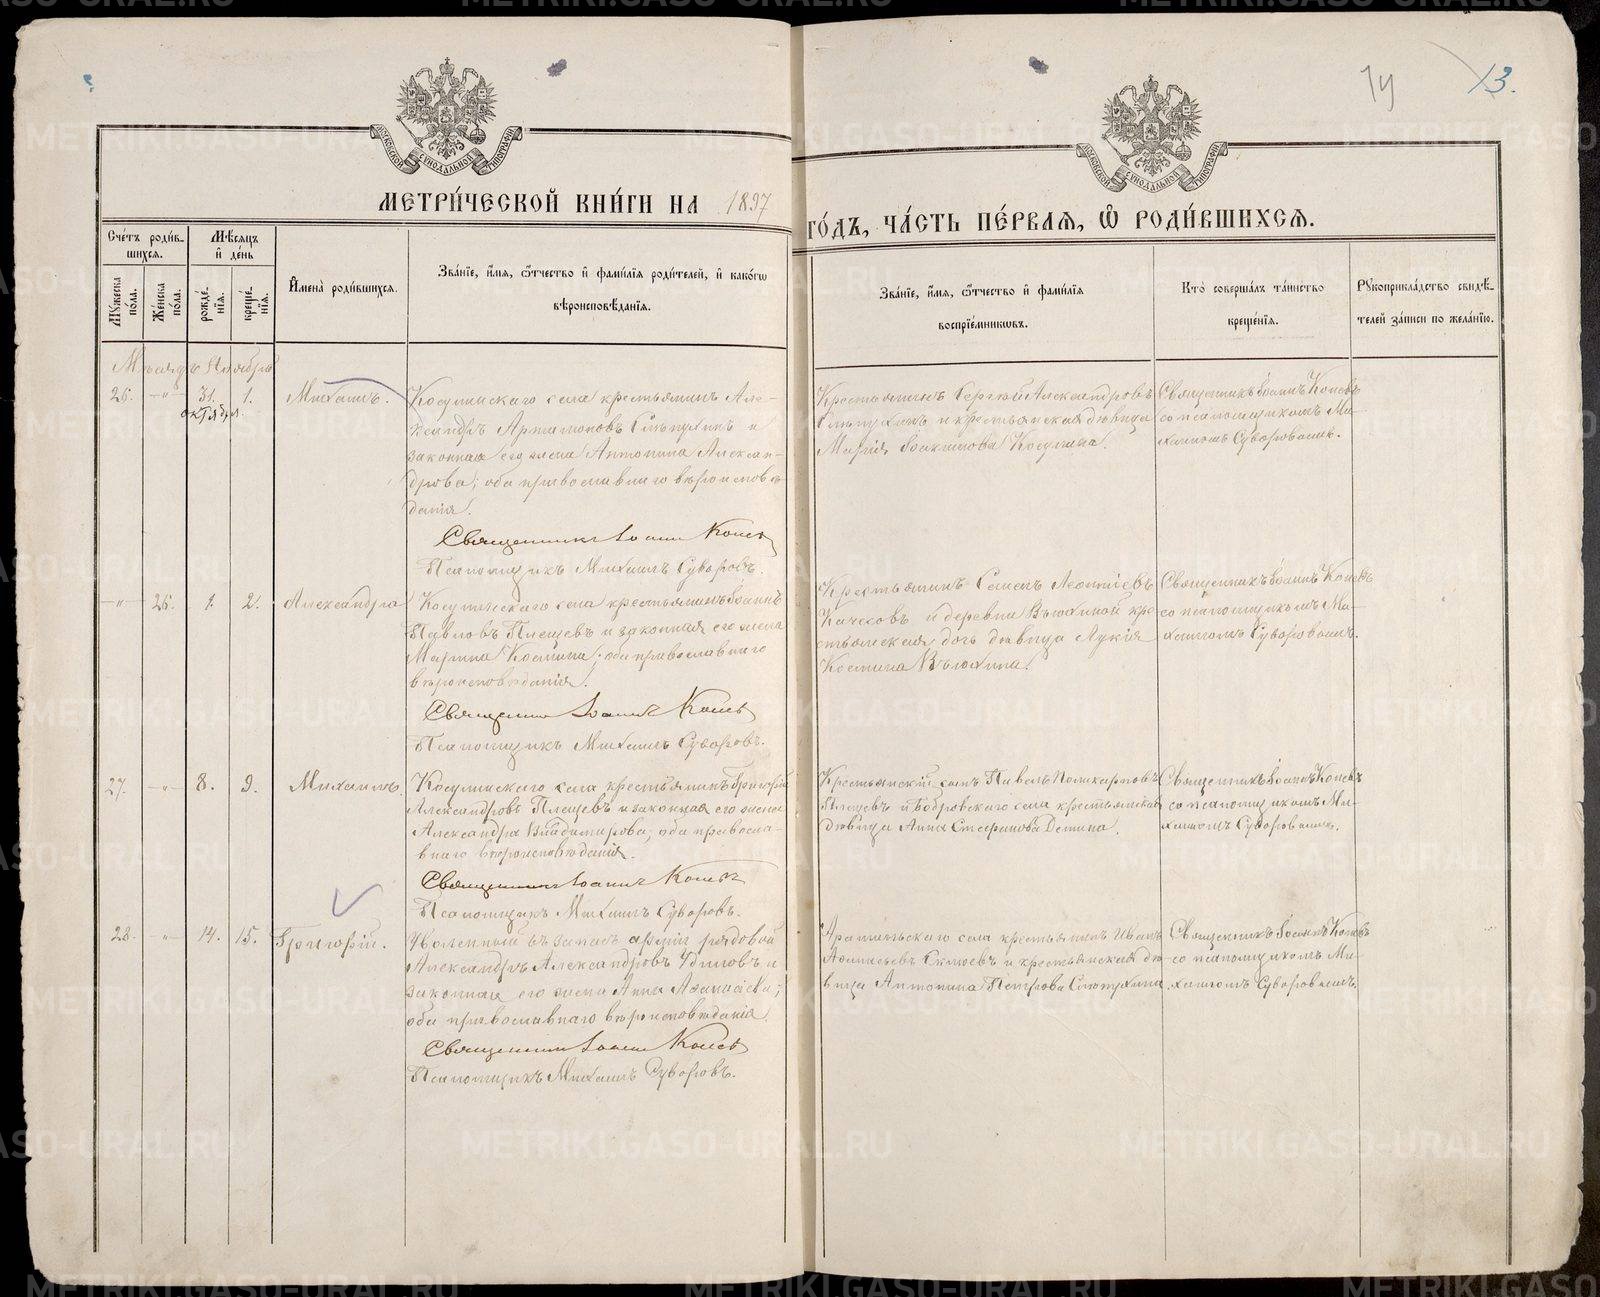 14
13.
МОСКОВСКОЙ СѴНОДАЛЬНОЙ ТИПОГРАФІИ
МОСКОВСКОЙ СѴНОДАЛЬНОЙ ТИПОГРАФІИ
МЕТРИ́ЧЕСКОЙ КНИ́ГИ НА 1897
ГО́ДЪ, ЧА́СТЬ ПЕ́РВАЯ, Ѽ РОДИ́ВШИХСЯ.
Сче́тъ роди́в-
шихся.
Мѣ́сяцъ
и҆ де́нь
Мꙋ́жеска
по́ла.
Же́нска
по́ла.
рожде́-
нїя.
креще́-
нїя.
И҆мена̀ роди́вшихся.
Зва́нїе, и҆́мя, ѻ҆́тчество и҆ фами́лїя роди́телей, и҆ како́гѡ
вѣроисповѣ́данїя.
Зва́нїе, и҆́мя, ѻ҆́тчество и҆ фами́лїя
воспрїе́мникѡвъ.
Кто̀ соверша́лъ та́инство
креще́нїя.
Рꙋкоприкла́дство свидѣ́-
телей за́писи по жела́нїю.
Мѣсяцъ Ноябрь
26. -"- 31. октября. 1.
Михаилъ.
Косулинскаго села крестьянинъ Але-
ксандръ Артамоновъ и
законная его жена Антонина Алексан-
дрова; оба православнаго вѣроисповѣ-
данія.
Священникъ Іоаннъ
Псаломщикъ Михаилъ Суворовъ.
Крестьянинъ Сергей Александровъ
и крестьянская дѣвица
Марія Іоакимова Косулина.
Священникъ Іоаннъ
со псаломщикомъ Ми-
хаиломъ Суворовымъ.
-"- 26. 1. 2.
Александра
Косулинскаго села крестьянинъ Іоаннъ
Павловъ Плещевъ и законная его жена
Марина Космина; оба православнаго
вѣроисповѣданія.
Священникъ Іоаннъ
Псаломщикъ Михаилъ Суворовъ.
Крестьянинъ Семенъ Леонтіевъ
Качесовъ и деревни Вьюхиной кре-
стьянская дочь дѣвица Лукія
Космина Вьюхина.
Священникъ Іоаннъ
со псаломщикомъ Ми-
хаиломъ Суворовымъ.
27. -"- 8. 9.
Михаилъ.
Косулинскаго села крестьянинъ Григорій
Александровъ Плещевъ и законная его жена
Александра Владимирова; оба правосла-
внаго вѣроисповѣданія.
Священникъ Іоаннъ
Псаломщикъ Михаилъ Суворовъ.
Крестьянскій сынъ Павелъ Поликарповъ
Плещевъ и Бобровскаго села крестьянская
дѣвица Анна Стефанова
Священникъ Іоаннъ
со псаломщикомъ Ми-
хаиломъ Суворовымъ.
28. -"- 14. 15.
Григорій.
Уволенный въ запасъ арміи рядовой
Александръ Александровъ и
законная его жена Анна Аѳанасіева;
оба православнаго вѣроисповѣданія.
Священникъ Іоаннъ
Псаломщикъ Михаилъ Суворовъ.
Арамильскаго села крестьянинъ Иванъ
Аѳанасьевъ и крестьянская дѣ-
вица Антонина Петрова
Священникъ Іоаннъ
со псаломщикомъ Ми-
хаиломъ Суворовымъ.
METRIKI.GASO-URAL.RU